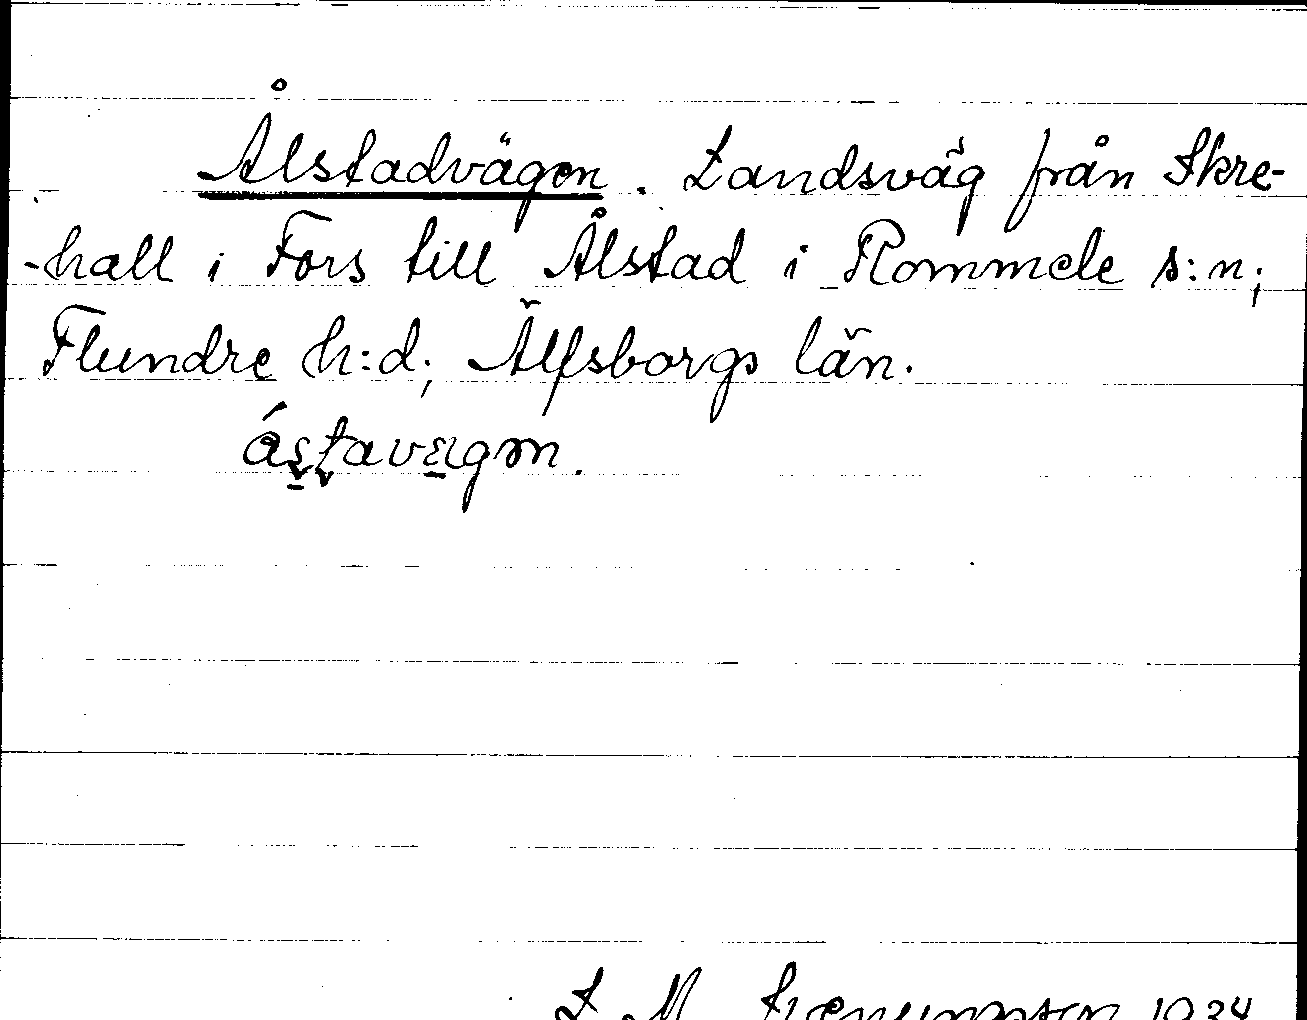 Ålstadvägen. Landsväg från Skre-
-hall i Fors till Ålstad i Rommele s:n;
Flundre h:d; Älfsborgs län.
L. M. 1934